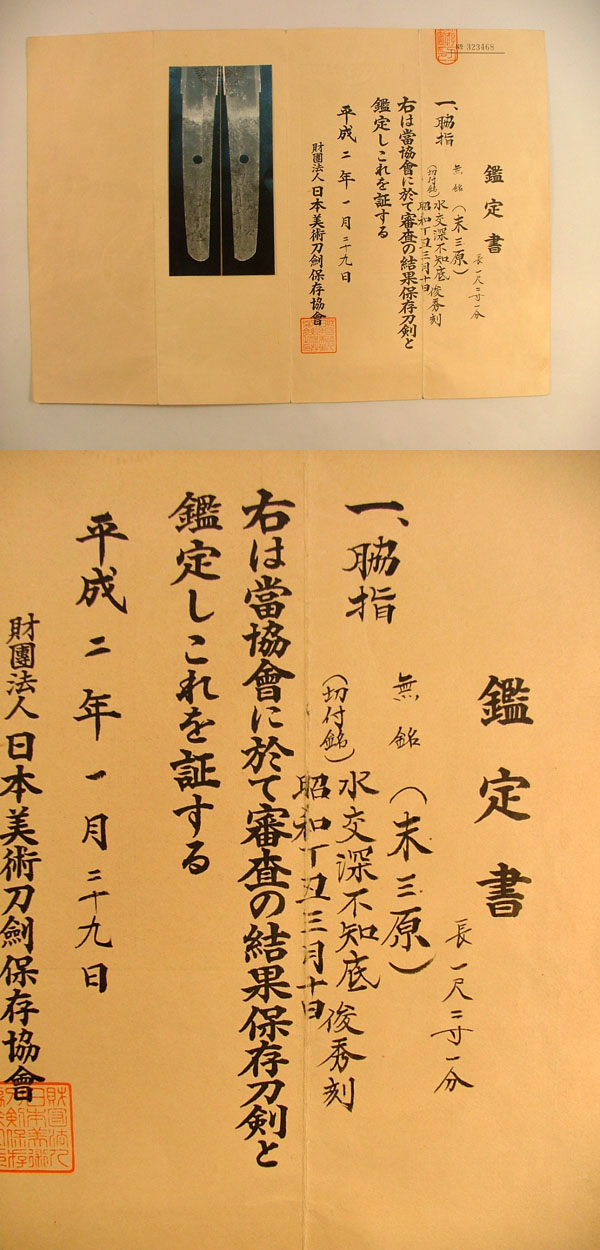 № 323468
鑑定書
長一尺二寸一分
一、脇指
無銘(末三原)
(切付銘)水交深不知底 俊秀刻
昭和丁丑三月十日
右は當協會に於て審査の結果保存刀剣と
鑑定しこれを証する
平成二年一月二十九日
財團法人日本美術刀劍保存協會
鑑定書
長一尺二寸一分
一、脇指
無銘(末三原)
(切付銘)水交深不知底 俊秀刻
昭和丁丑三月十日
右は當協會に於て審査の結果保存刀剣と
鑑定しこれを証する
平成二年一月二十九日
財團法人日本美術刀劍保存協會